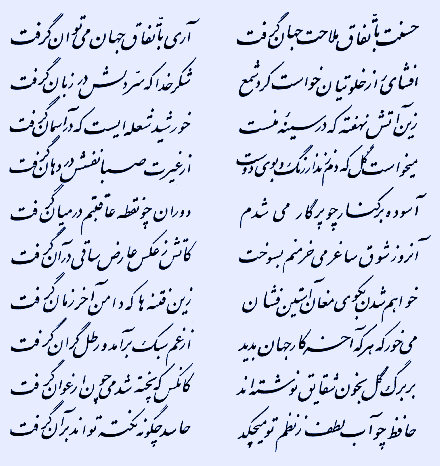 حسنت باتفاق ملاحت جهان گرفت آری باتفاق جهان می توان گرفت
افشای راز خلوتیان خواست کرد شمع شکر خدا که سر دلش در زبان گرفت
زین آتش نهفته که در سینه منست خورشید شعله ایست که در آسمان گرفت
میخواست گل که دم زند از رنگ و بوی دوست از غیرت صبا نفسش در دهان گرفت
آسوده بر کنار چو پرگار می شدم دوران چو نقطه عاقبتم در میان گرفت
آنروز شوق ساغر می خرمنم بسوخت کاتش ز عکس عارض ساقی در آن گرفت
خواهم شدن بکوی مغان آستین فشان زین فتنه ها که دامن آخر زمان گرفت
می خور که هر که آخر کار جهان بدید از غم سبک برآمد و رطل گران گرفت
بر برگ گل بخون شقایق نوشته اند کانکس که پخته شد می چون ارغوان گرفت
حافظ چو آب لطف ز نظم تو میچکد حاسد چگونه نکته تواند بر آن گرفت